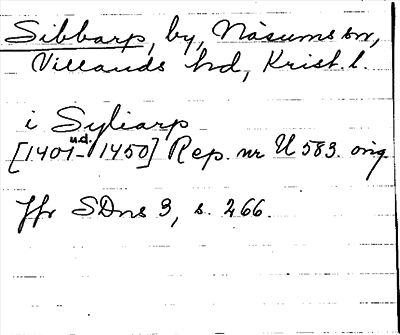 Sibbarp, by, Näsums sn,
Villands hd, Krist. l.
i Syliarp
[1401 u.d. - 1450] Rep. nr U 583. orig.
Jfr SOns 3, s. 266.